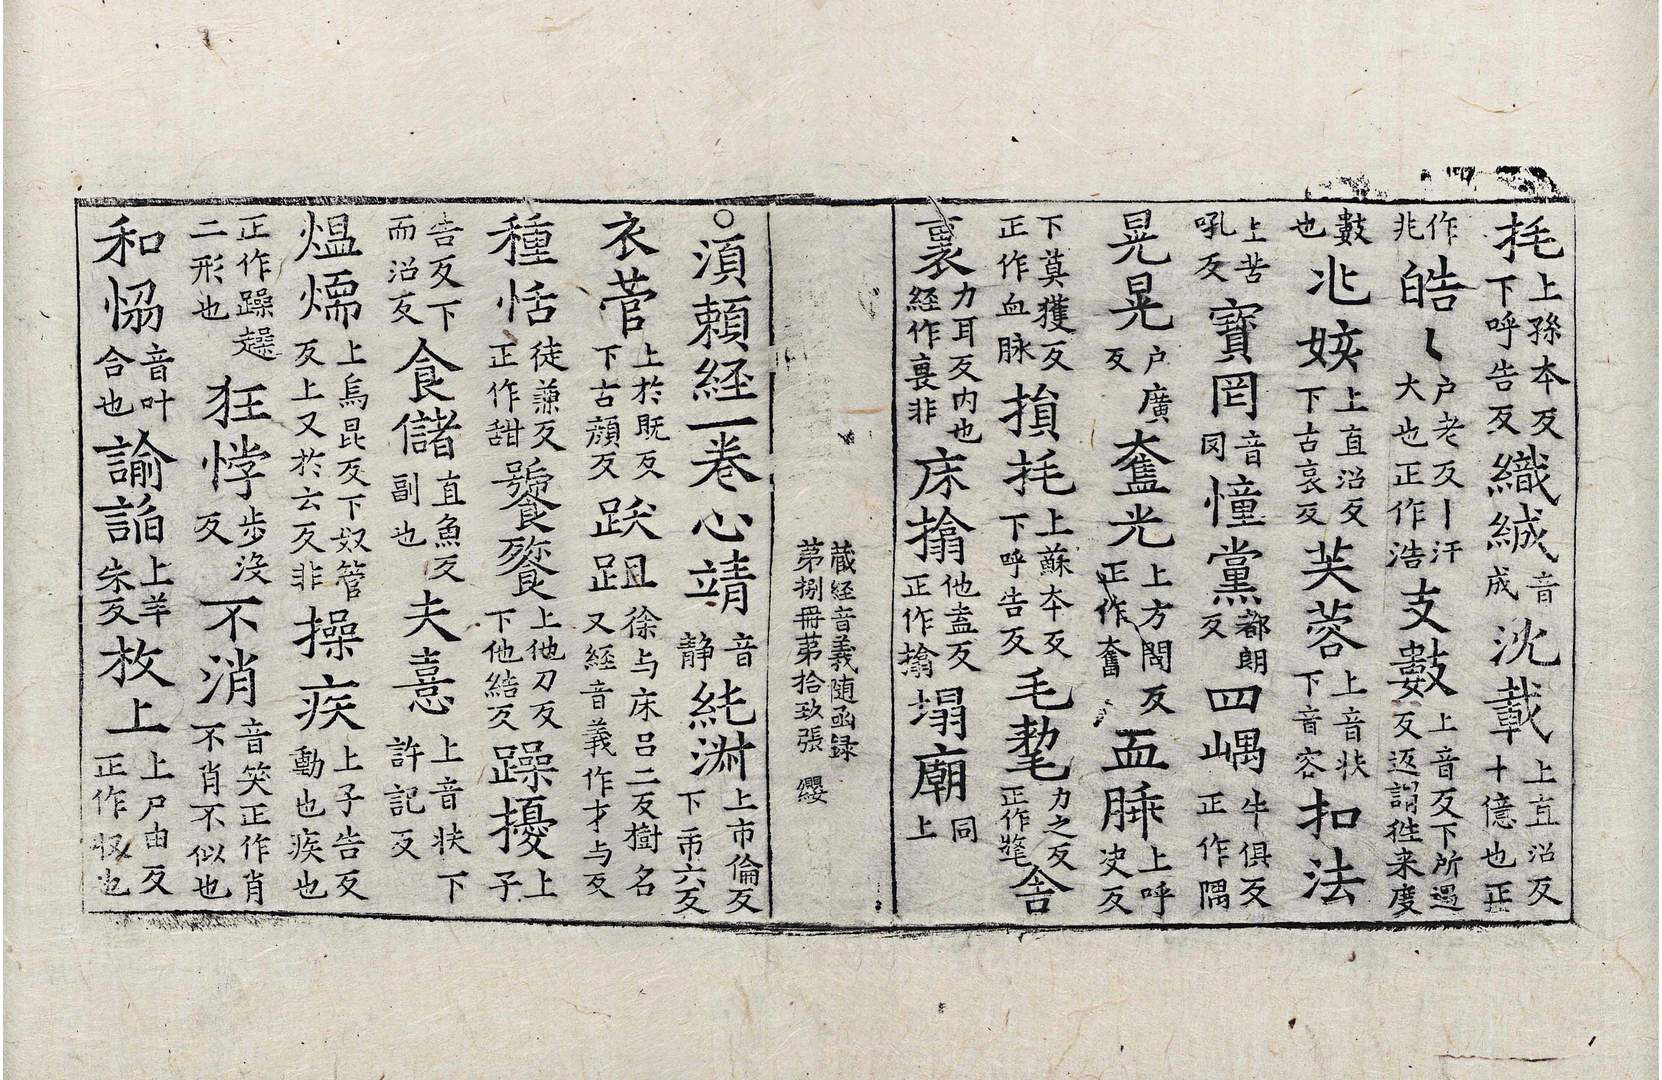 㧌上孫本反下呼告反織絾音成沇載上直沼反十億也正
作兆皓〻户老反丨汗大也正作浩支數上音反下所遇反返謂徃来度
數也㳜姟上直沼反下古哀反芙蓉上音扶下音容扣法
上苦吼反寶罔音罔憧黨都朗反四嵎牛俱反正作隅
晃晃户廣反奮光上方問反正作奮血脉上呼决反
下莫獲反正作血脉損㧌上蘇本反下呼告反毛氂力之反正作氂舍
裏力耳反内也経作裹非床搨他盍反正作搨塌廟同上
藏経音義随函録第捌冊第拾玖張 纓
○湏賴経一卷心靖音静純淑上市倫反下市六反
衣菅上於既反下古顔反趺跙徐与床吕二反樹名又経音義作才与反
種恬徒兼反正作甜饕餮上他刀反下他結反躁擾上子
告反下而沼反食儲直魚反副也夫憙上音扶下許記反
煴煗上烏昆反下奴管反上又於云反非操疾上子告反動也疾也
正作躁趮二形也狂悖步没反不消音笑正作肖不肖不似也
和恊音叶合也諭諂上羊朱反枚上上尸由反正作収也